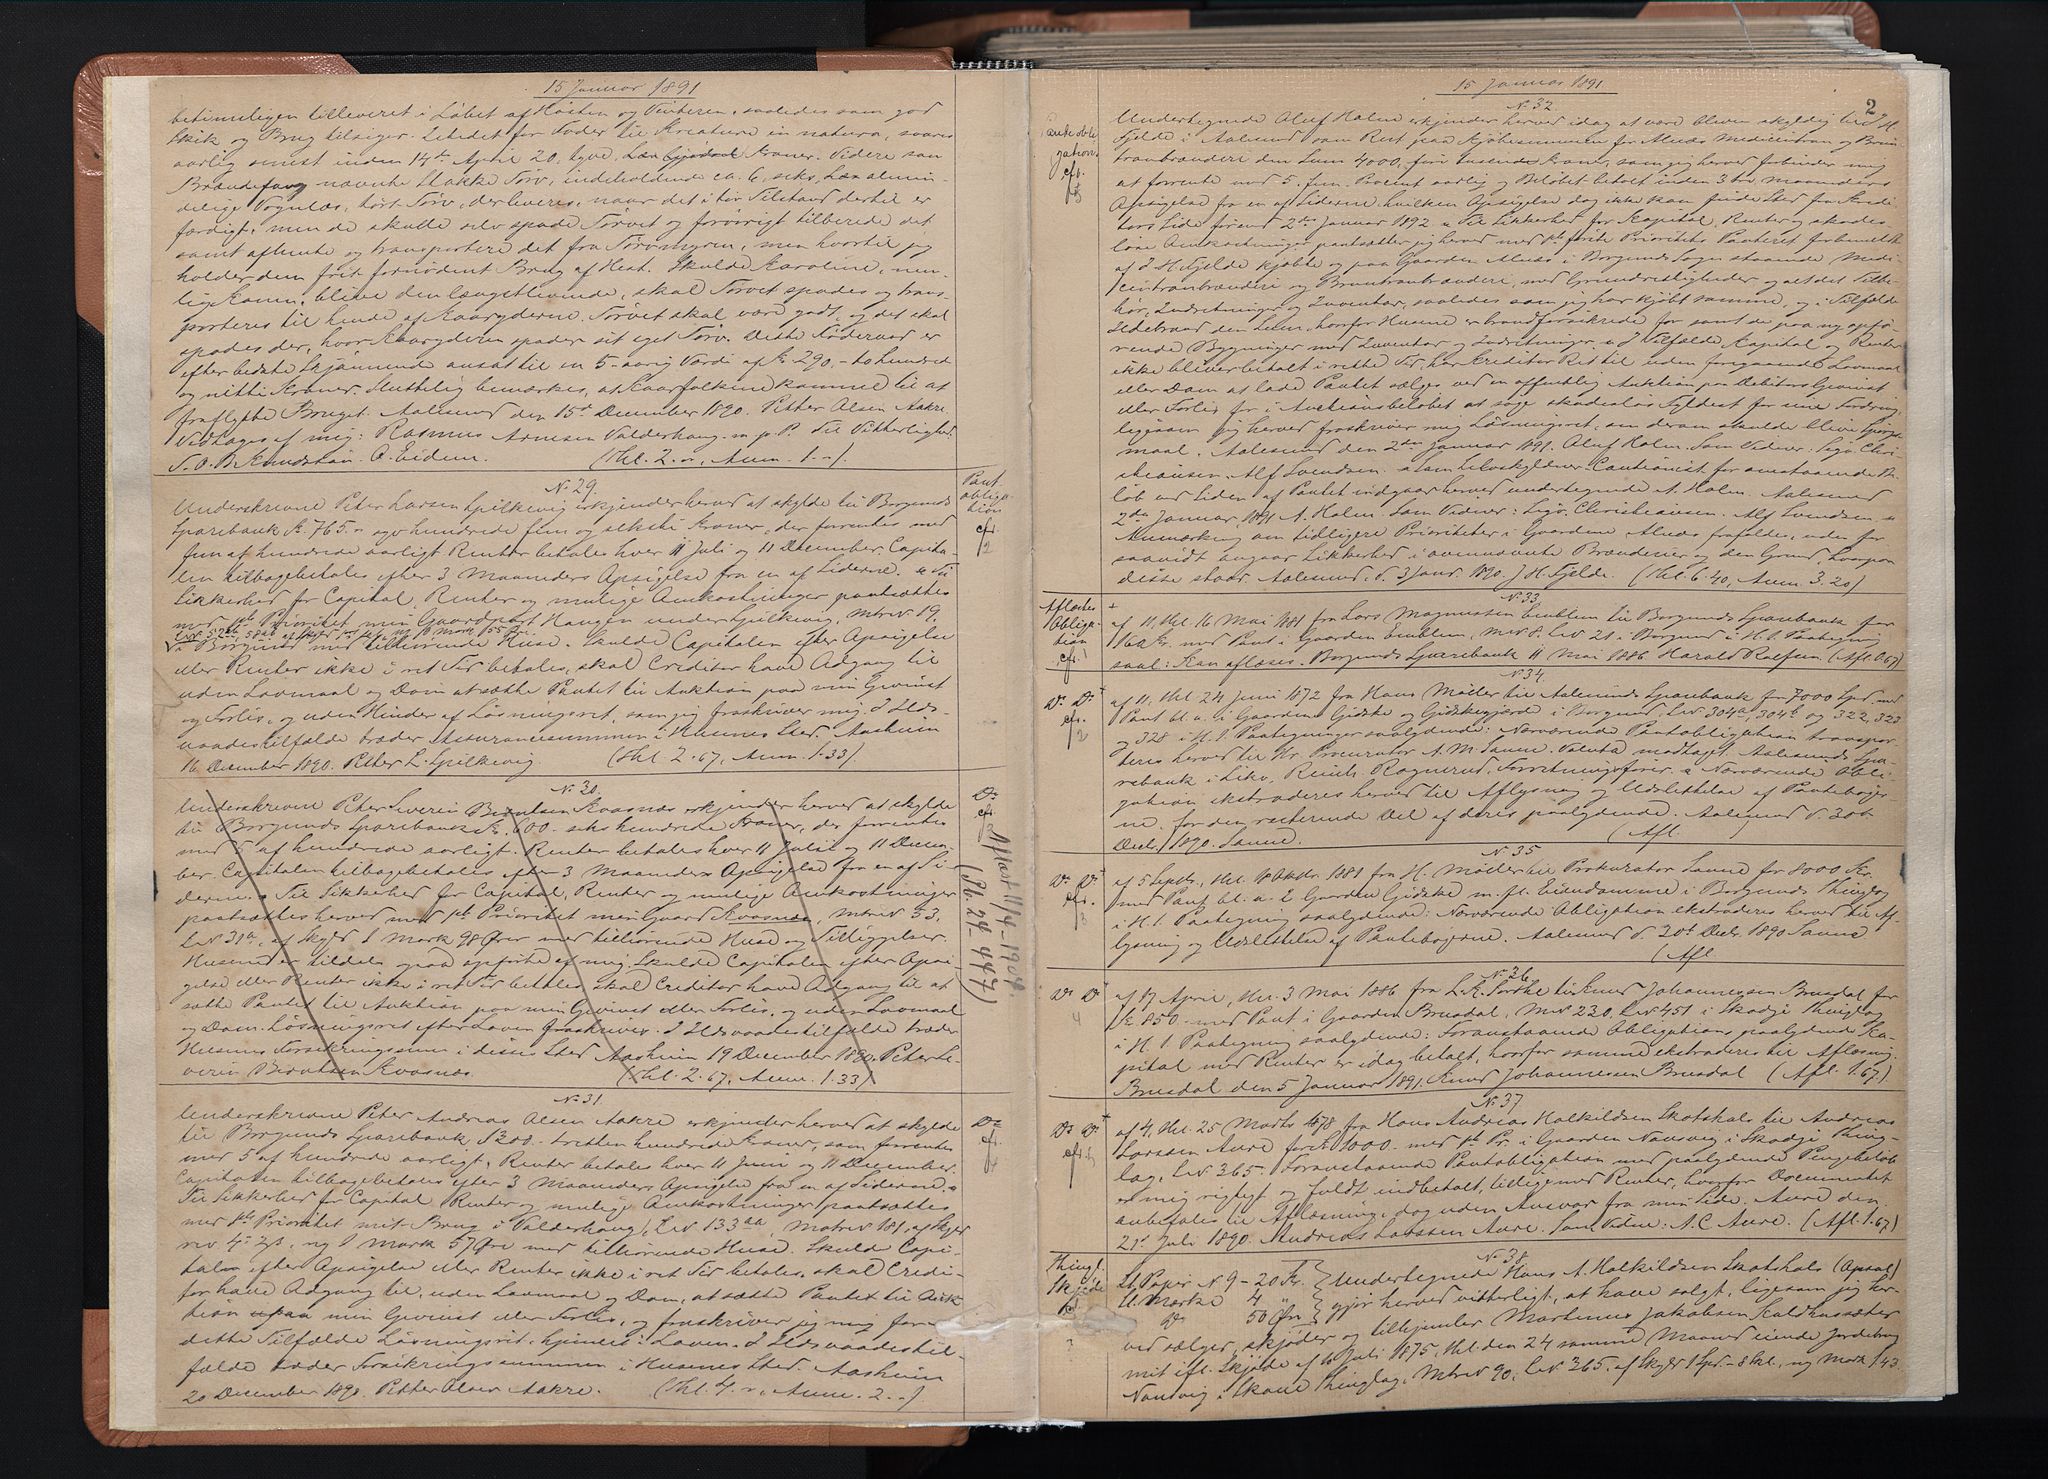 15 Januar 1891
betimeligen tilleveret i Løbet af Høsten og Vinteren, saaledes som god
Skik og Brug tilsiger. Istedet for Foder til Kreature in natura, svares
aarlig senest inden 14de April 20, tyve, Kroner. Videre som
nævnte Stakke Torv, indeholdende ca. 6, seks, Læs almin-
delige Vognlæs, tørt Torv, der leveres, naar det i tør Tilstand dertil er
færdigt, men de skulle selv spade Torvet og forøvrigt tilberede det
samt afhente og transportere det fra Torvmyren, men hvortil jeg
holder dem frit fornødent Brug af Hest. Skulde Karoline, nem-
lig Konen, blive den længstlevende, skal Torvet spades og trans-
porteres til hende af Kaaryderne. Torvet skal være godt, og det skal
spades der, hvor Kaaryderen spader sit eget Torv. Dette Føderaad er
efter bedste Skjønnende ansat til en 5-aarig Værdi af Kr. 290,- to hundrede
og nitti Kroner. Sluttelig bemærkes, at Kaarfolkene kommer til at
fraflytte Bruget. Aalesund den 15de December 1890. Petter Olsen Aakre.
Vedtages af mig: Rasmus Arnesen Valderhaug. m. p. P. Til Vitterlighed:
T. O. B. Knudssøn. O. Eidem. (Thl. 2. ", Anm. 1. -).
N. 29.
Pant-
obliga-
tion
cfr.
2
Underskrevne Peter Larsen Spilkevig erkjender herved at skylde til Borgunds
Sparebank Kr. 765.- syv hundrede fem og seksti Kroner, der forrentes med
fem af hundrede aarligt. Renter betales hver 11 Juli og 11 December. Capita-
len tilbagebetales efter 3 Maaneders Opsigelse fra en af Siderne. " Til
Sikkerhed for Capital, Renter og mulige Omkostninger pantsættes
med 1ste Prioritet min Gaardpart Haugen under Spilkevig, Mtrn 19,
i Borgund med tilhørende Huse. Skulde Capitalen efter Opsigelse
eller Renter ikke i ret Tid betales, skal Creditor have Adgang til
uden Lovmaal og Dom at sætte Pantet til Auktion paa min Gevinst
og Forlis, og uden Hinder af Løsningsret, som jeg fraskriver mig. I Ilds-
vaadestilfælde træder Assurancesummen i Husenes Sted. Aasheim
16 December 1890. Peter L. Spilkevig. (Thl. 2.67, Anm. 1.33).
N. 30.
Do
cfr.
Aflæst 11/4-1904.
(Pb. 24 447)
Underskrevne Peter Severin Berntsen Kvasnæs erkjender herved at skylde
til Borgunds Sparebank Kr. 600.- seks hundrede Kroner, der forrentes
med 5 af hundrede aarligt. Renter betales hver 11 Juli og 11 Decem-
ber. Capitalen tilbagebetales efter 3 Maaneders Opsigelse fra en af Si-
derne. " Til Sikkerhed for Capital, Renter og mulige Omkostninger
pantsættes herved med 1ste Prioritet min Gaard Kvasnæs, Mtrn 53,
LN 31a, af Skyld 1 Mark 98 Øre med tilhørende Huse og Tilliggelser.
Husene er tildels paa opførte af mig. Skulde Capitalen efter Opsi-
gelse eller Renter ikke i ret Tid betales, skal Creditor have Adgang til at
sætte Pantet til Auktion paa min Gevinst eller Forlis, og uden Lovmaal
og Dom. Løsningsret efter Loven fraskrives. I Ildsvaadestilfælde træder
Husenes Forsikringssum i disses Sted. Aasheim 19 December 1890. Peter Se-
verin Berntsen Kvasnæs. (Thl. 2.67, Anm. 1.33)
N. 31
Do
cfr.
4
Underskrevne Peter Andreas Olsen Aakre erkjender herved at skylde
til Borgunds Sparebank 1300.- tretten hundrede Kroner, som forrentes
med 5 af hundrede aarligt. Renter betales hver 11 Juni og 11 December.
Capitalen tilbagebetales efter 3 Maaneders Opsigelse fra en af Siderne. "
Til Sikkerhed for Capital Renter og mulige Omkostninger pantsættes
med 1ste Prioritet mit Brug i Valderhaug, LN 133aa, Matrn 181, af Skyld
ny 1 Mark 57 Øre med tilhørende Huse. Skulde Capi-
talen efter Opsigelse eller Renter ikke i ret Tid betales, skal Credi-
tor have Adgang til, uden Lovmaal og Dom, at sætte Pantet til Auk-
tion paa min Gevinst eller Forlis, og fraskriver jeg mig for
dette Tilfælde Løsningsret, hjemlet i Loven. I Ildsvaadestil-
fælde træder Forsikringssummen i Husenes Sted. Aasheim
20 December 1890. Petter Olsen Aakre. (Thl. 4. ", Anm. 2. -).
15 Januar 1891
2
N. 32.
Panteobli-
gation.
cfr.
5
Undertegnede Oluf Holm erkjender herved idag at være bleven skyldig til J. H.
Fjelde i Aalesund som Rest paa Kjøbesummen for Alnæs Medicintran og Brun-
tranbrænderi den Sum 4000, fire tusende Kroner, som jeg herved forbinder mig
at forrente med 5, fem, Procent aarlig og Beløbet betalt inden 3 tre Maaneders
Opsigelse fra en af Siderne, hvilken Opsigelse dog ikke kan finde Sted fra Kredi-
tors Side førend 2den Januar 1892. " Til Sikkerhed for Kapital, Renter og skades-
løse Omkostninger pantsætter jeg herved med 1ste første Prioritets Panteret forbemeldte
af J. H. Fjelde kjøbte og paa Gaarden Alnæs i Borgunds Sogn staaende Medi-
cintranbrænderi og Bruntranbrænderi, med Grundrettigheder og alt det Tilbe-
hør, Indretninger og Inventar, saaledes som jeg har kjøbt samme, og i Tilfælde
Ildebrand den Sum, hvorfor Husene er brandforsikrede for samt de paa ny opfø-
rende Bygninger med Inventar og Indretninger. " I Tilfælde Kapital og Renter
ikke bliver betalt i rette Tid, har Kreditor Ret til uden foregaaende Lovmaal
eller Dom at lade Pantet sælges ved en offentlig Auktion paa Debitors Gevinst
eller Forlis for i Auctionsbeløbet at søge skadesløs Fyldest for sine Fordring,
ligesom jeg herved fraskriver mig Løsningsret, om derom skulde blive Spørgs-
maal. Aalesund den 2den Januar 1891. Oluf Holm. Som Vidner: Sigv. Chri-
stiansen. Alf Svendsen. " Som Selvskyldner Cautionist for omstaaende Be-
løb ved Siden af Pantet indgaar herved undertegnede A. Holm. Aalesund
2den Januar 1891. A. Holm. Som Vidner: Sigv. Christiansen. Alf Svendsen. "
Anmærkning om tidligere Prioriteter i Gaardene Alnæs frafaldes, uden for
saavidt angaar Sikkerhed i ovennævnte Brænderier og den Grund, hvorpaa
disse staar. Aalesund, d. 3 Janr. 1890. J. H. Fjelde. (Thl. 6.40, Anm. 3.20)
N. 33.
Aflæstes
Obliga-
tion
cfr. 1
af 11, thl. 16 Mai 1881 fra Lars Magnussen Emblem til Borgunds Sparebank for
160 Kr. med Pant i Gaarden Emblem, M.N 8. LN 21 i Borgund i H. t. Paategning
saal: Kan aflæses. Borgunds Sparebank 11 Mai 1886. Harald Roefsen. (Afl. 0.67)
N. 34.
Do Do
cfr.
2
af 11, thl. 24 Juni 1872 fra Hans Møller til Aalesunds Sparebank for 7000 Spd. med
Pant bl. a. i Gaarden Gjidske og Gjidskegjærde i Borgund, LN 304a, 304b og 322, 323
og 328 i H. t. Paategninger saalydende: Nærværende Pantobligation transpor-
teres herved til Hr. Procurator A. M. Sanne. Valuta modtaget. Aalesunds Spa-
rebank i Likv. Reinh. Rognerud, Forretningsfører. " Nærværende Obli-
gation ekstraderes herved til Aflysning og Udslettelse af Pantebøger-
ne, for den resterende Del af deres paalydende. Aalesund d. 30te
Decb. 1890. Sanne. (Afl.
N. 35
Do Do
cfr.
3
af 5 Septbr., thl. Oktbr. 1881 fra H. Møller til Prokurator Sanne for 8000 Kr.
med Pant bl. a. i Gaarden Gjidske m. fl. Eiendomme i Borgunds Thinglag
i H. t. Paategning saalydende: Nærværende Obligation ekstraderes herved til Af-
lysning og Udslettelse af Pantebøgerne. Aalesund d. 30te Decbr. 1890 Sanne
(Afl
N. 36
Do Do
4
af 17 April, thl. 3 Mai 1886 fra L. K. til Knud Johannessen Brusdal for
Kr. 850.- med Pant i Gaarden Brusdal, M.N 230, LN 451 i Skodje Thinglag
i H. t. Paategning saalydende: Foranstaaende Obligations paalydende Ka-
pital med Renter er idag betalt, hvorfor samme ekstraderes til Aflæsning.
Brusdal den 5 Januar 1891. Knud Johannessen Brusdal (Afl. 1.67.)
N. 37
Do Do
cfr. 5
af 4, thl. 25 Marts 1878 fra Hans Andreas Halkildsen Skotshals til Andreas
Larssen Aure for Kr. 1000.- med 1ste Pr. i Gaarden Nausvig i Skodje Thing-
lag, LN 365. Foranstaaende Pantobligation med paalydende Pengebeløb
er mig rigtigt og fuldt indbetalt, tilligemed Renter, hvorfor Documentet
anbefales til Aflæsning, dog uden Ansvar fra min Side. Aure den
21de Juli 1890. Andreas Larssen Aure. Som Vidne: A. C. Aure. (Afl. 1.67)
N. 38
Thingl.
Skjøde
St. Papir N 9 - 20 Kr.
St. Mærke 4 "
Do 50 Øre
Undertegnede Hans A. Halkildsen Skotshals (Opsal)
gjør herved vitterligt, at have solgt, ligesom jeg her-
ved sælger, skjøder og tilhjemler Martinus Jakobsen Kaldhussæter
mit ifl. Skjøde af 10 Juli 1875, thl. den 24 samme Maaned eiende Jordebrug
Nausvig i Skodje Thinglag, Mtrn 90, LN 365, af Skyld 1 Spd. - 8 skl., ny Mark 1.43